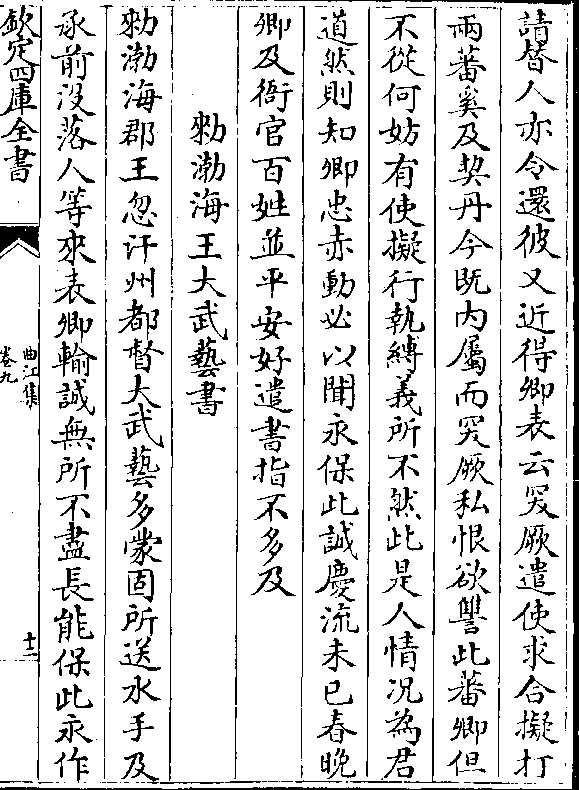 請替人亦令還彼又近得卿表云突厥遣使求合擬打
兩蕃奚及契丹今既内屬而突厥私恨欲讐此蕃卿但
不從何妨有使擬行執縛義所不然此是人情況為君
道然則知卿忠赤動必以聞永保此誠慶流未已春晚
卿及衙官百姓並平安好遣書指不多及
勑渤海王大武藝書
勑渤海郡王忽汗州都督大武藝多蒙固所送水手及
承前没落人等來表卿輸誠無所不盡長能保此永作
欽定四庫全書
曲江集
卷九
十二